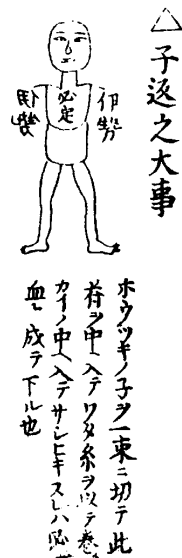 △子返之大事
必定
ホウツキノ子ヲ一束ニ切テ此
符ヲ中ヘ入テワタ糸ヲ以テ巻
カイノ中ヘ入テサシヒキスレハ必
血ト成テ下ル也